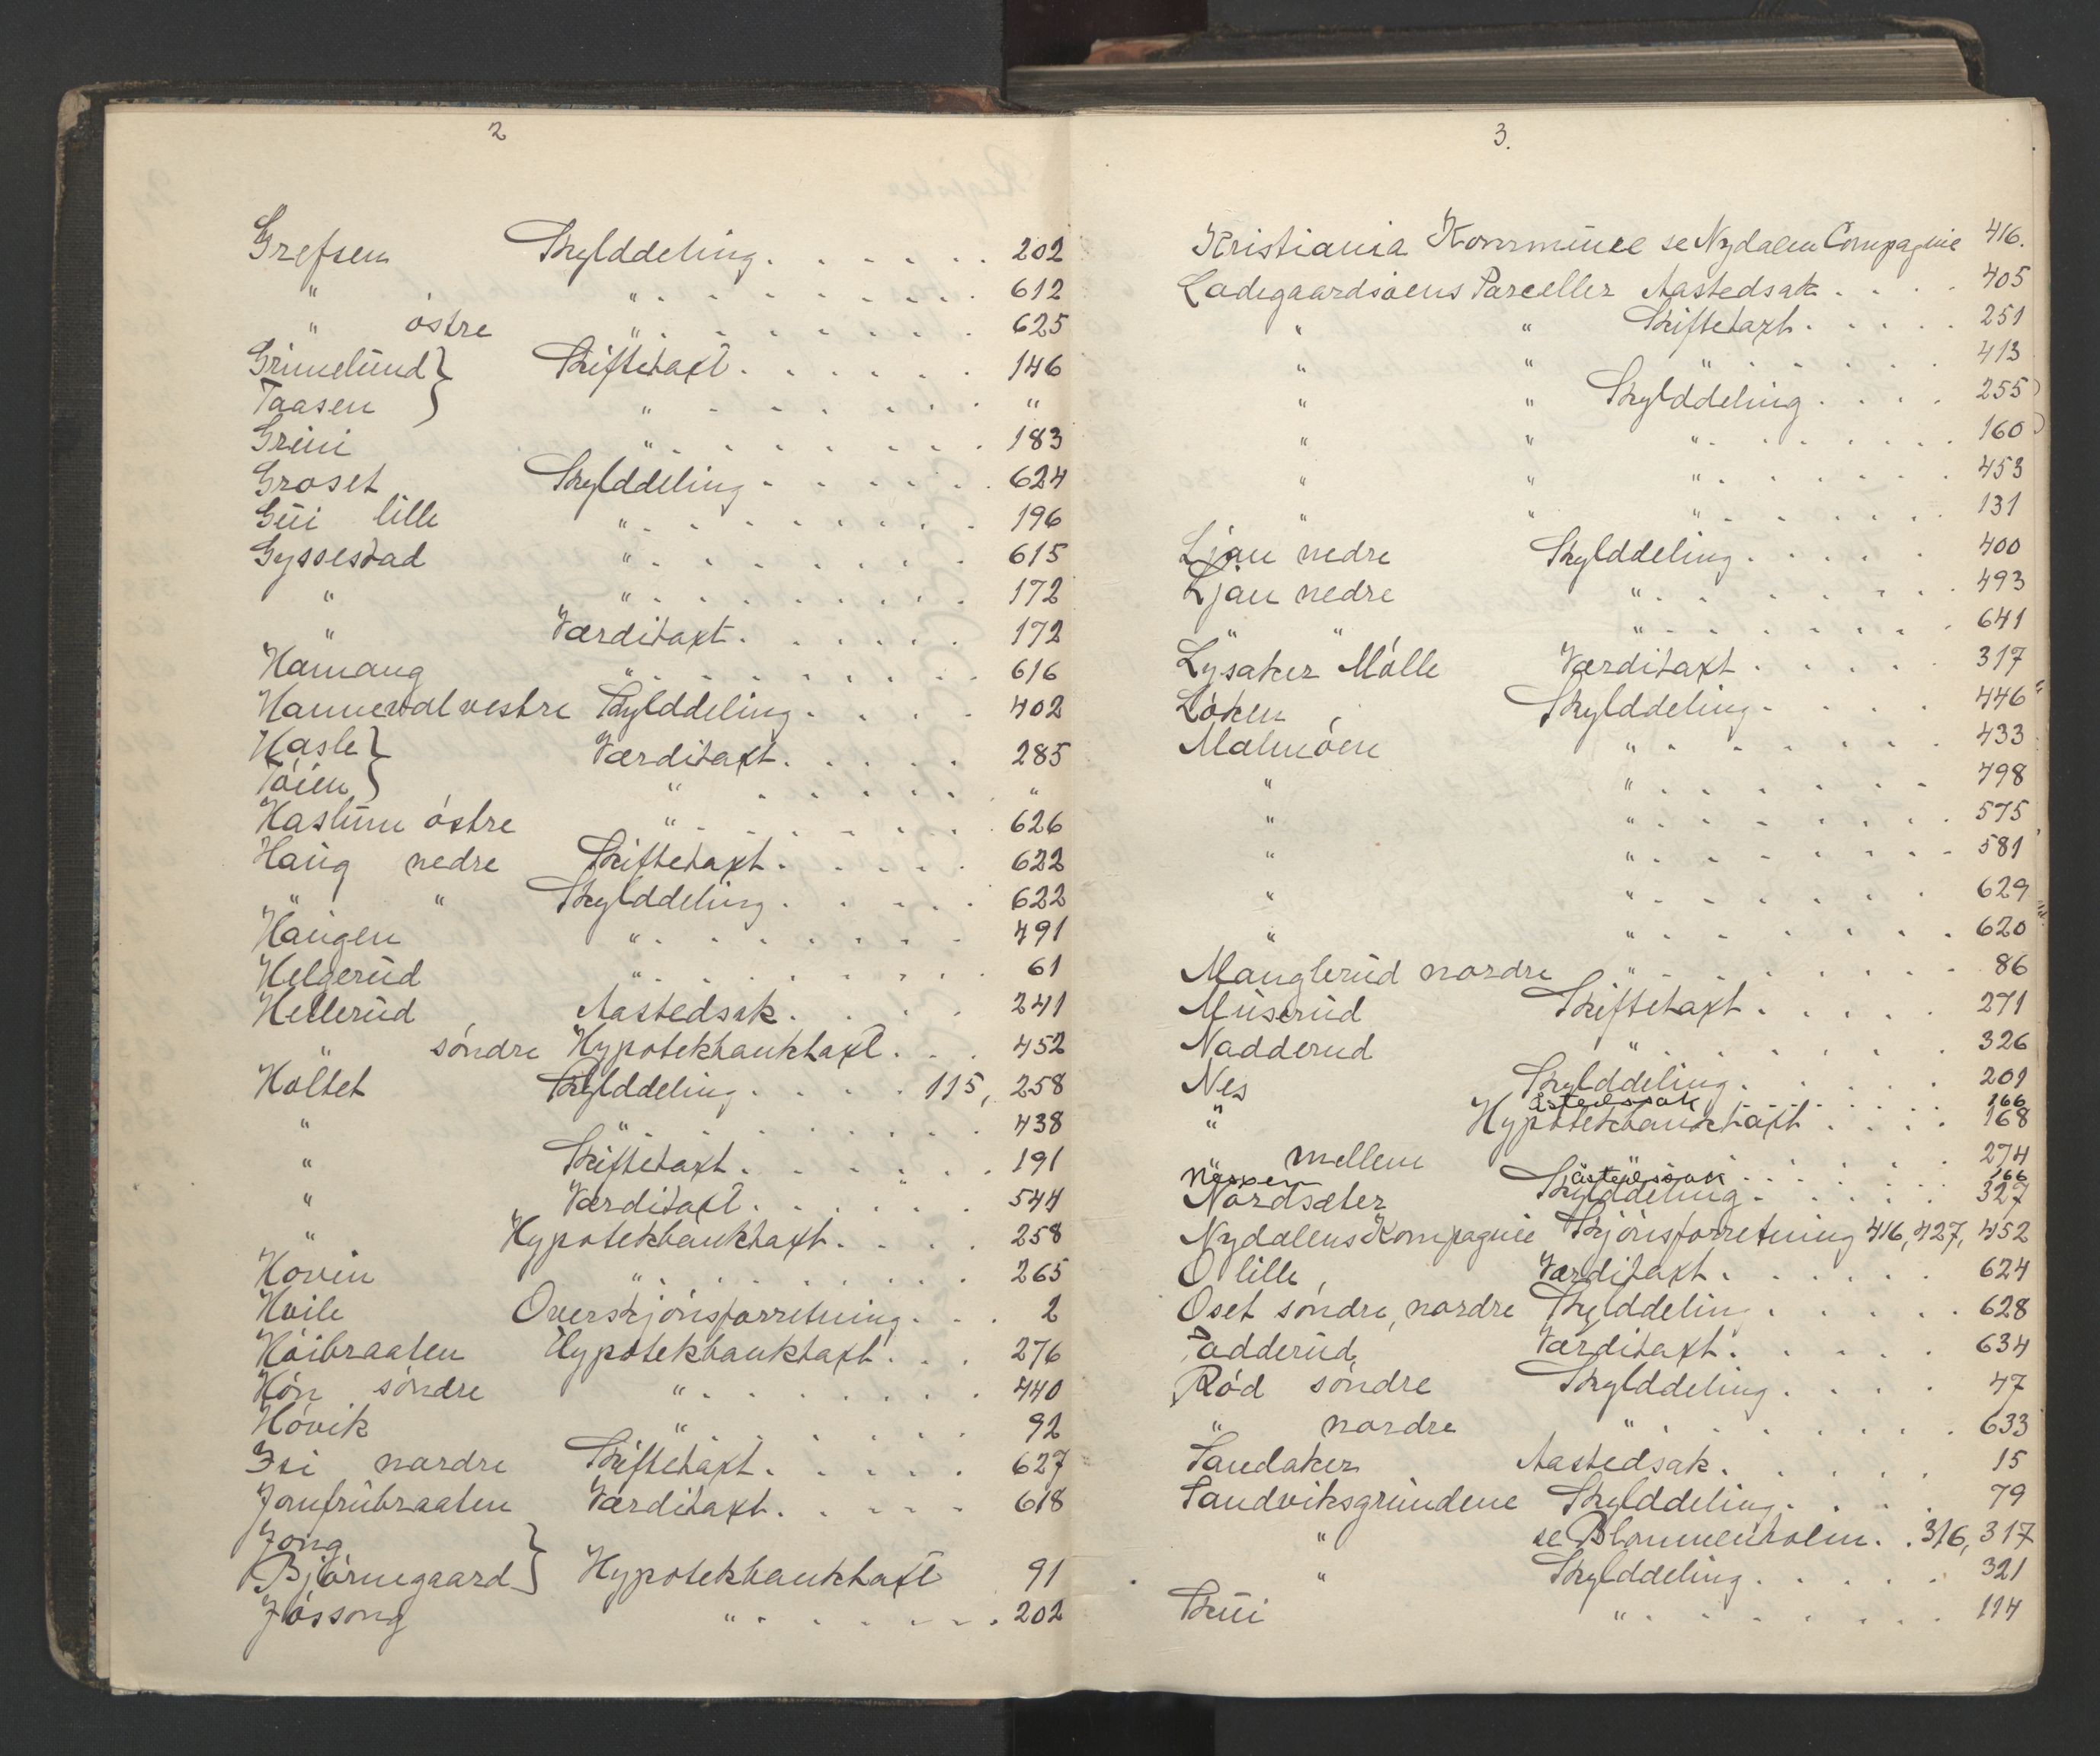 2
Grefsen Skylddeling. . . . . . 202
" " . . . . . . . . . 612
" östre " . . . . . . . . 625
Grimelund } Skiftetaxt . . . . . . 146
Taasen } " . . . . . . . "
Grini " . . . . . . . . 183
Groset Skylddeling . . . . . . 624
Gui lille " . . . . . . . . 196
Gyssestad " . . . . . . . . 615
" " . . . . . . . . 172
" Værditaxt . . . . . . 172
Hamang " . . . . . . . . 616
Hannevol vestre Skylddeling . . . . 402
Hasle } Værditaxt . . . . . 285
Töien } " . . . . . . "
Haslum östre " . . . . . . . 626
Haug nedre Skiftetaxt . . . . . 622
" " Skylddeling . . . . . 622
Haugen " . . . . . . . 491
Helgerud " . . . . . . . 61
Hellerud Aastedsak . . . . 241
" söndre Hypotekbanktaxt . . . 452
Holtet Skylddeling . . . . 115, 258
" " . . . . . . . . 438
" Skiftetaxt . . . . . . 191
" Værditaxt . . . . . . 544
" Hypotekbanktaxt . . . . 258
Hovin " . . . . . . . . 265
Hvile Overskjönsforretning . . . 2
Höibraaten Hypotekbanktaxt . . . 276
Hön söndre " . . . . . . . 440
Hövik " . . . . . . . 92
Isi nordre Skiftetaxt . . . . . 627
Jomfrubraaten Værditaxt . . . . . 618
Jong }
Bjørnegaard } Hypotekbanktaxt 91
Jössong " . . . . . . . 202
3.
Kristiania Kommune se Nydalen Compagnie 416.
Ladegaardsöens Parceller Aastedsak . . . . 405
" " Skiftetaxt . . . . . 251
" " " . . . . . . 413
" " Skylddeling . . . . 255
" " " . . . . . . . 160
" " " . . . . . . . 453
" " " . . . . . . . 131
Ljan nedre Skylddeling . . . . . 400
Ljan nedre " . . . . . . . 493
" " " . . . . . . . 641
Lysaker Mölle Værditaxt . . . . . 317
Löken Skylddeling . . . . . 446
Malmöen " . . . . . . . 433
" " . . . . . . . 498
" " . . . . . . . 575
" " . . . . . . . 581
" " . . . . . . . 629
" " . . . . . . . 620
Manglerud nordre " . . . . . . . 86
Muserud Skiftetaxt . . . . . 271
Nadderud " . . . . . . . 326
Nes Skylddeling . . . . . 201
åstedssak 166
" Hypotekbanktaxt . . . . 168
" mellem " . . . . . . . 274
Nesset åstedssak 166
Nordsæter Skylddeling . . . . . 327
Nydalens Kompagnie Skjönsforretning 416, 427, 452
O lille Værditaxt . . . . . . 624
Oset söndre, nordre Skylddeling . . . . . 628
Padderud Værditaxt . . . . . 634
Röd söndre Skylddeling . . . . 47
" nordre " . . . . . . . 633
Sandaker Aastedsak . . . . . 15
Sandviksgrundene Skylddeling . . . . 79
" se Blommenholm . . 316, 317
" Skylddeling . . . . . 321
Skui " . . . . . . . 114